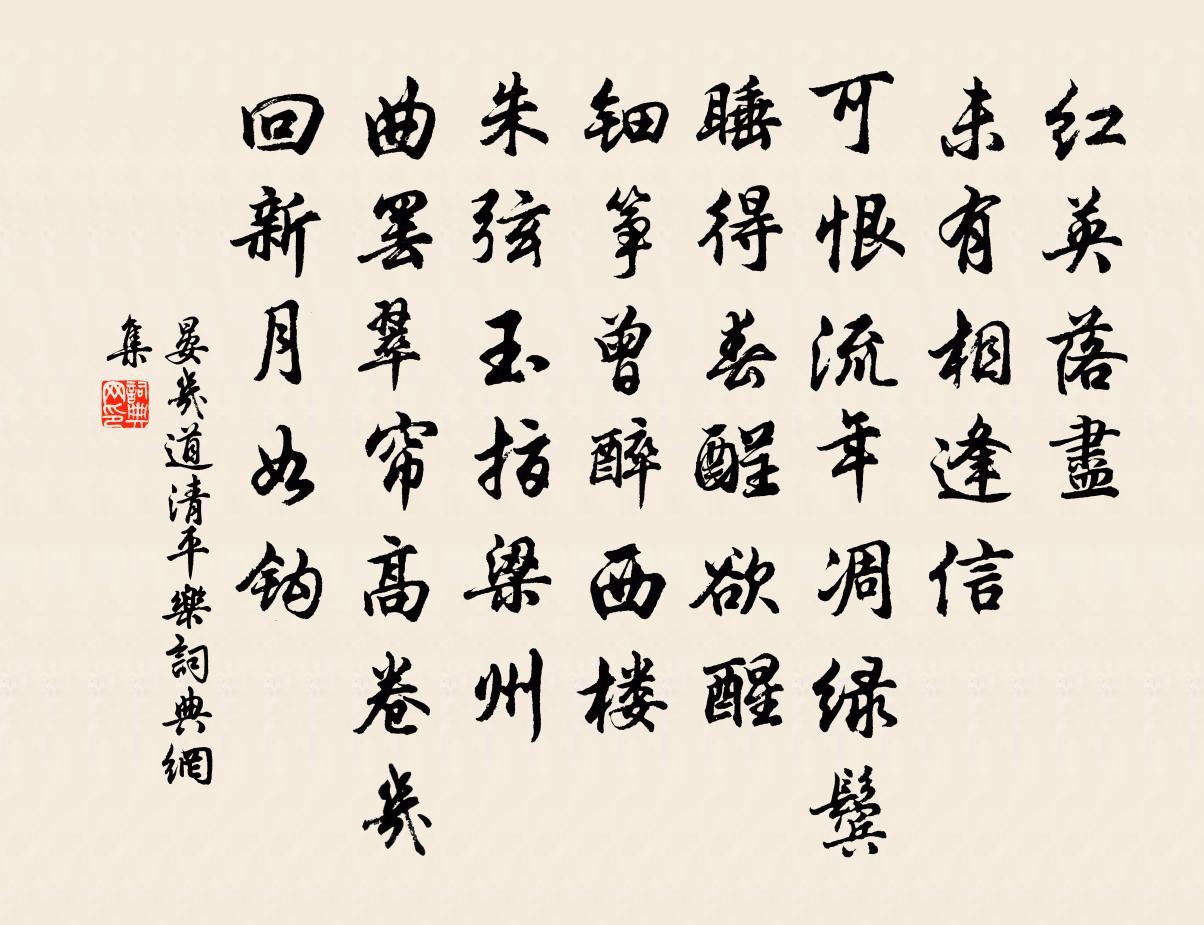 红英落盡
未有相逢信
可恨流年凋绿鬓
睡得春酲欲醒
钿筝曾醉西楼
朱弦玉指梁州
曲罢翠帘高卷幾
回新月如钩
晏幾道清平樂詞典網
集
詞典
网印